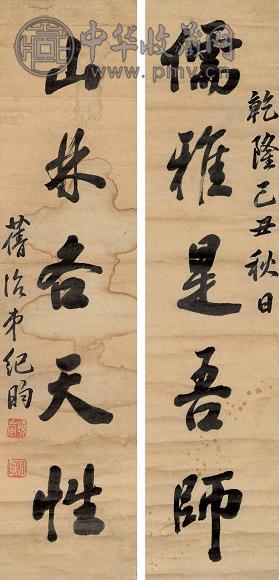 中华收藏网
www.pmv.cn
乾隆己丑秋日
儒雅是吾師
山林各天性
舊治弟紀昀